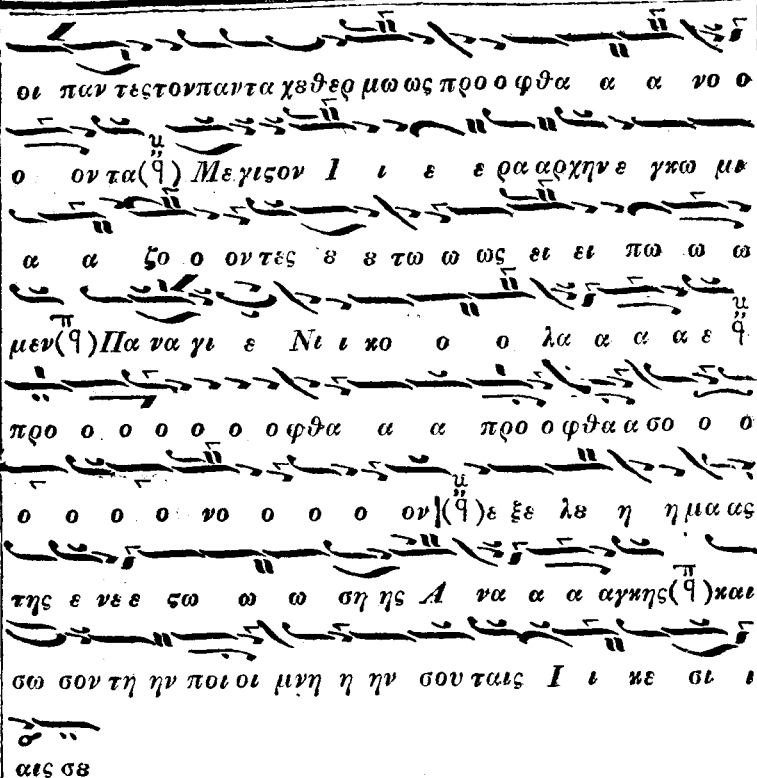 οι παν τες τον παντα χȣ θερ μω ως προ ο φθα α α νο ο
ο ον τα(ϥ) Με γιϛον Ι ι ε ε ρα αρχην ε γκω μι
α α ζο ο ον τες ȣ ȣ τω ω ως ει ει πω ω ω
μεν(ϥ)Πα να γι ε Νι ι κο ο ο λα α α α ε ϥ
προ ο ο ο ο ο ο φθα α α προ ο φθα α σο ο ο
ο ο ο ο νο ο ο ο ον(ϥ)ε ξε λȣ η η μα ας
της ε νε ε ϛω ω ω ση ης Α να α α αγκης(ϥ)και
σω σον τη ην ποι οι μνη η ην σου ταις Ι ι κε σι ι
αις σȣ